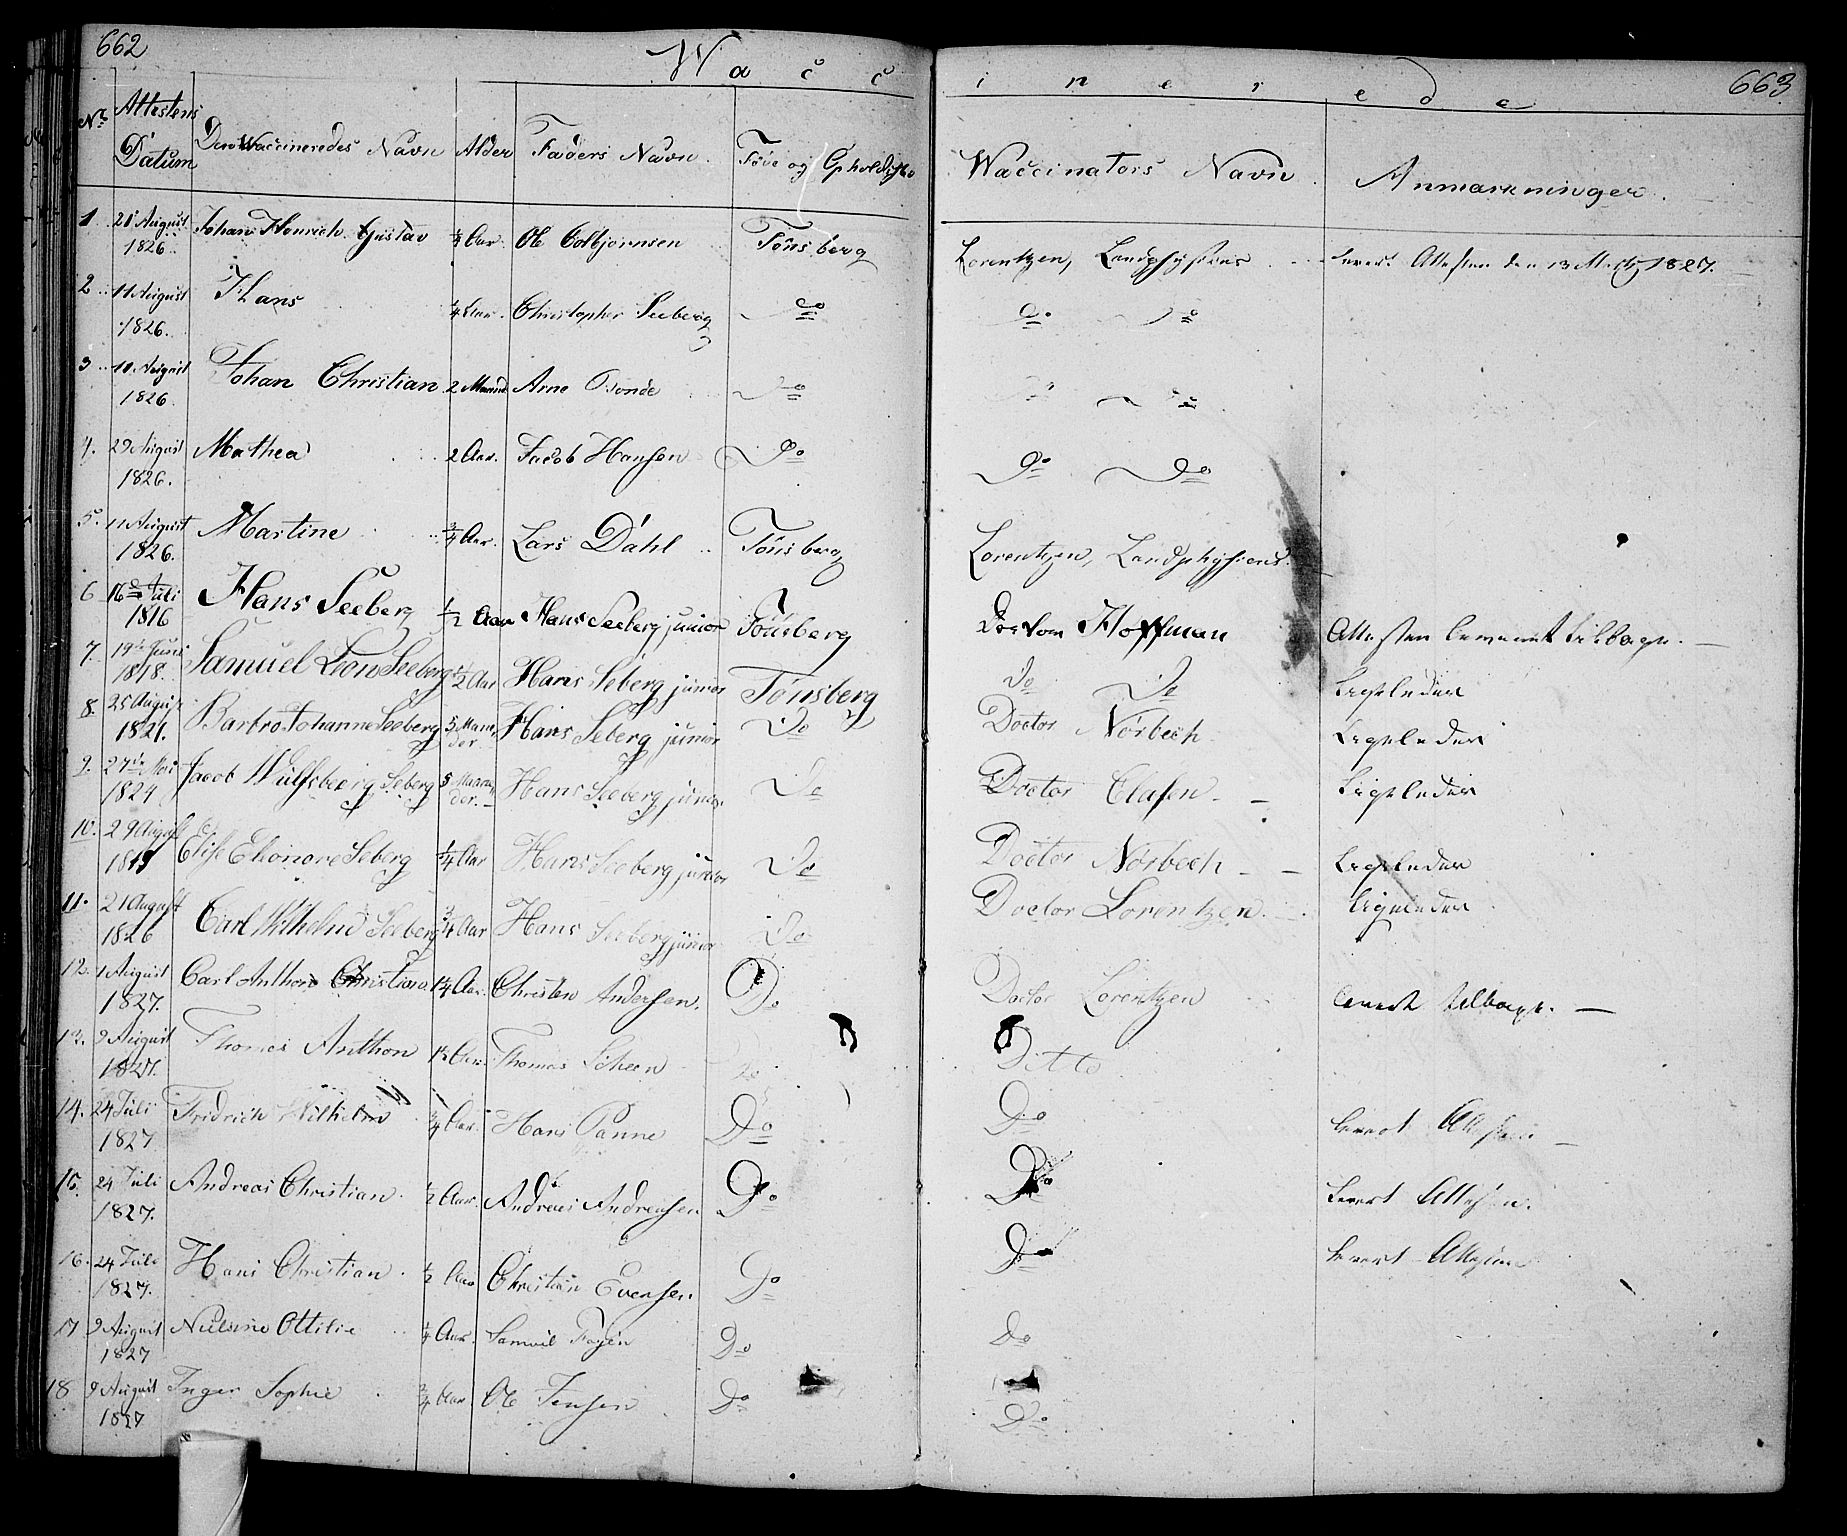 662 Wacc
inerede 663
No Attestens Datum Den Waccineredes Navn Alder Faders Navn Føde og Opholdsstæd Waccinators Navn Anmærkninger.
1 28 August 1826. Johan Henrich Gustav 3/4 Aar. Ole Colbjørnsen Tønsberg Lorentzen, Landphysicus Attesten den 1827.
2 11 August 1826. Hans 1/4 Aar. Christopher Seeberg Do Do Do
3 10 August 1826. Johan Christian 2 Maaned Arne Bonde Do Do
4. 29 August 1826. Mathea 2 Aar. Jacob Hansen Do Do Do
5. 11 August 1826. Martine 3/4 Aar. Lars Dahl Tønsberg Lorentzen, Landphysicus.
6 16de Juli 1816 Hans Seeberg 1/2 Aar Hans Seeberg junior Tønsberg Doctor Hoffman Attesten leveret tilbage.
7. 19de Juni 1818. Samuel Leon Seeberg 1/2 Aar Hans Seberg junior Tønsberg Do Do Ligeledes
8. 25 August 1821. Barbro Johanne Seeberg 5 Maaneder. Hans Seberg junior Do Doctor Nørbech. Ligeledes
9. 27de Mai 1824 Jacob Wulfsberg Seberg 5 Maaneder. Hans Seeberg junior Do Doctor Clasen. Ligeledes
10. 29 August 1819 Elise Elionore Seberg 1/4 Aar Hans Seeberg junior Do Doctor Nørbech Ligeledes
11. 21 August 1826 Carl Wilhelm Seeberg 3/4 Aar Hans Seeberg junior Do Doctor Lorentzen. Ligeledes
12. 1 August 1827. Carl Anthon Christian 1/4 Aar. Christen Andersen. Do Doctor Lorentzen leveret tilbage.
13. 9 August 1827. Thomas Anthon Aar. Thomas Do Ditto
14. 24 Juli 1827 Fridrich Wilhelm 3/4 Aar. Hans Panne Do Do levert Attesten
15. 24 Juli 1827. Andreas Christian 1/2 Aar. Andreas Andreasen Do Do levert Attesten.
16. 24 Juli 1827. Hans Christian 1/2 Aar Christian Evensen Do Do levert Attesten
17 9 August 1827 Nielsine Ottilie 1/4 Aar. Samuel Foyen Do Do
18 9 August 1827 Inger Sophie 3/4 Aar Ole Jensen Do Do